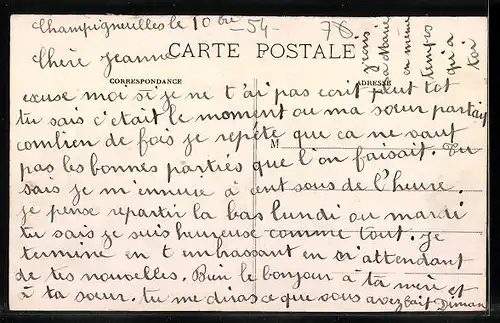 Champigneulles le 10 bre 54
78
Chère Jeanne
CARTE POSTALE
CORRESPONDANCE
ADRESSE
M
excuse moi si je ne t'ai pas ecrit peut tot
tu sais c'etait le moment ou ma sœur partait
combien de fois je repéte que ca ne vaut
pas les bonnes parties que l'on faisait. Tu
sais je m'ennuie à cent sous de l'heure.
je pense repartir la bas lundi ou mardi
tu sais je suis heureuse comme tout. je
termine en t embrassant en attendant
de tes nouvelles. Bien le bonjour à ta mère et
à ta sœur. tu me diras ce que vous avez fait Diman
à Marie
en meme
temps
qu'a
toi